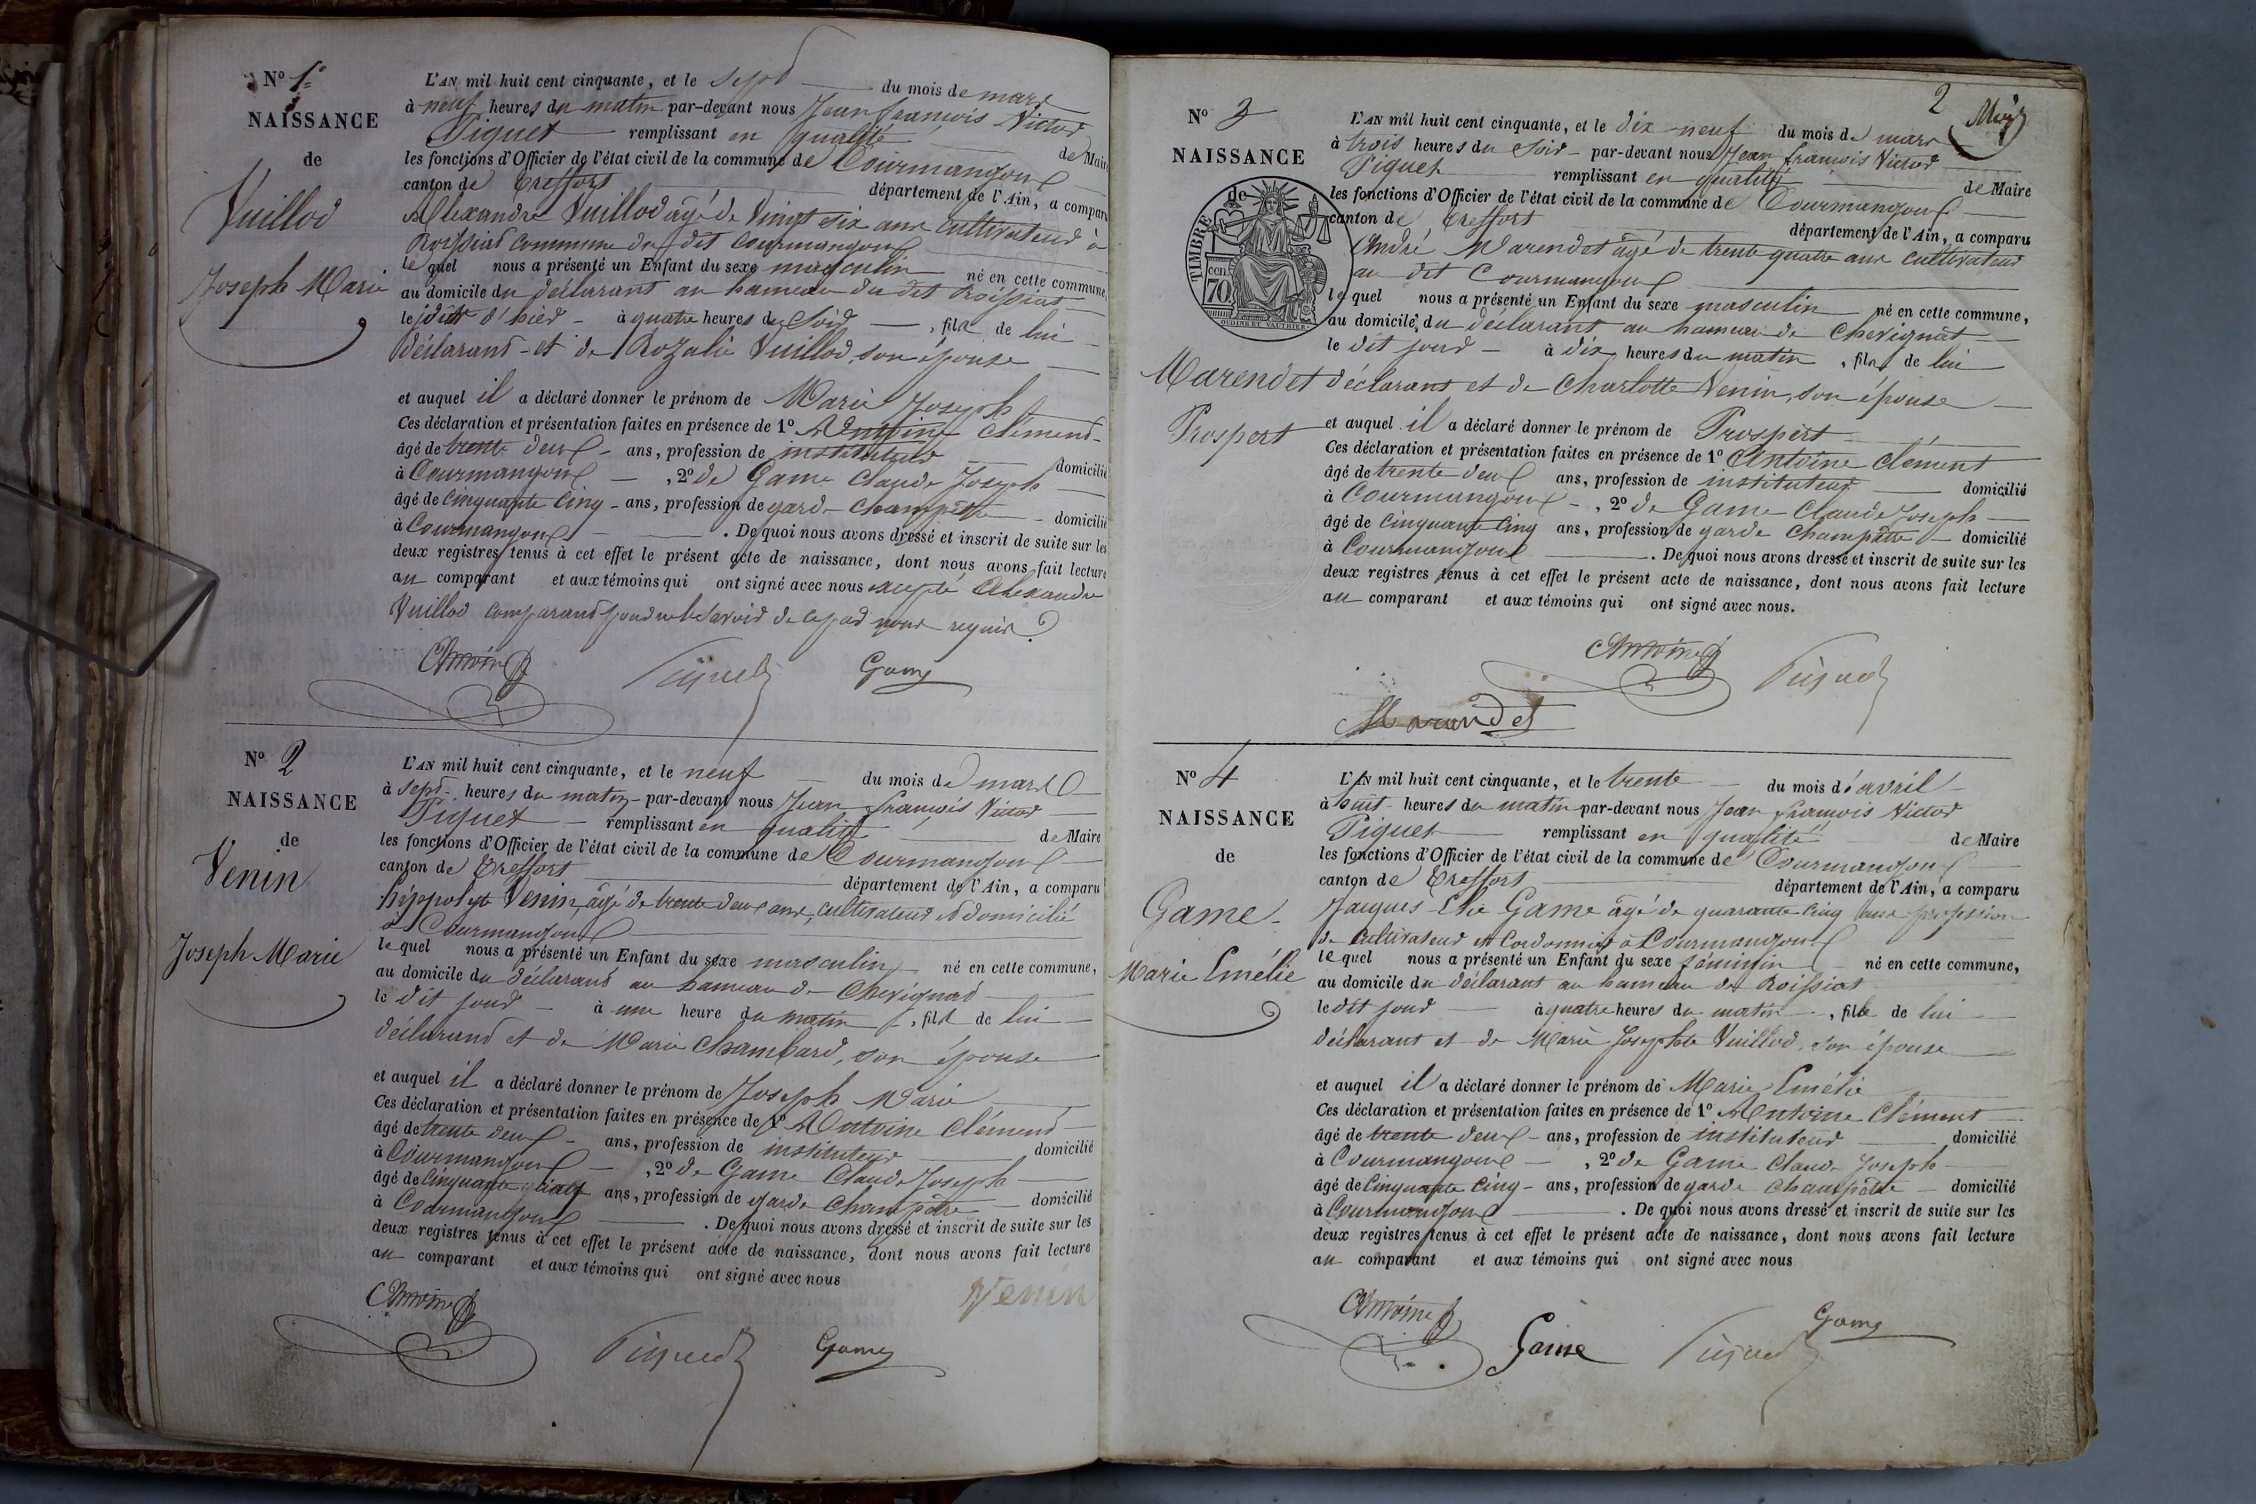 N° 1er
NAISSANCE
de
Vuillod
Joseph Marie
L'AN mil huit cent cinquante, et le sept du mois de mars
à neuf heures du matin par-devant nous Jean françois Victor
Piquet remplissant en qualité de Maire
les fonctions d'Officier de l'état civil de la commune de Courmangoux
canton de Treffort département de l'Ain, a comparu
Alexandre Vuillod âgé de Vingt six ans cultivateur à
Roissiat commune du dit Courmangoux
lequel nous a présenté un Enfant du sexe masculin né en cette commune,
au domicile du déclarant au hameau du dit Roissiat
le jour d'hier à quatre heures du soir, fils de lui
déclarant et de Rozalie Vuillod, son épouse
et auquel il a déclaré donner le prénom de Marie Joseph
Ces déclaration et présentation faites en présence de 1° Antoine Clément
âgé de trente deux ans, profession de instituteur domicilié
à Courmangoux, 2° de Game Claude Joseph
âgé de cinquante cinq ans, profession de garde champêtre domicilié
à Courmangoux. De quoi nous avons dressé et inscrit de suite sur les
deux registres tenus à cet effet le présent acte de naissance, dont nous avons fait lecture
au comparant et aux témoins qui ont signé avec nous excepté Alexandre
Vuillod comparant pour ne le savoir de ce par nous requis
Antoine Piquet Game
N° 2
NAISSANCE
de
Venin
Joseph Marie
L'AN mil huit cent cinquante, et le neuf du mois de mars
à sept heures du matin par-devant nous Jean françois Victor
Piquet remplissant en qualité de Maire
les fonctions d'Officier de l'état civil de la commune de Courmangoux
canton de Treffort département de l'Ain, a comparu
hippolyte Venin, âgé de trente deux ans, cultivateur et domicilié
à Courmangoux
lequel nous a présenté un Enfant du sexe masculin né en cette commune,
au domicile du déclarant au hameau de Chevignat
le dit jour à une heure du matin, fils de lui
déclarant et de Marie Chambard, son épouse
et auquel il a déclaré donner le prénom de Joseph Marie
Ces déclaration et présentation faites en présence de 1° Antoine Clément
âgé de trente deux ans, profession de instituteur domicilié
à Courmangoux, 2° de Game Claude Joseph
âgé de cinquante cinq ans, profession de garde champêtre domicilié
à Courmangoux. De quoi nous avons dressé et inscrit de suite sur les
deux registres tenus à cet effet le présent acte de naissance, dont nous avons fait lecture
au comparant et aux témoins qui ont signé avec nous
Venin
Antoine Piquet Game
2
N° 3
NAISSANCE
de
TIMBRE
70 cen
OUDINE ET VAUTHIER
Marendet
Prospert
L'AN mil huit cent cinquante, et le dix neuf du mois de mars
à trois heures du soir par-devant nous Jean françois Victor
Piquet remplissant en qualité de Maire
les fonctions d'Officier de l'état civil de la commune de Courmangoux
canton de Treffort département de l'Ain, a comparu
André Marendet âgé de trente quatre ans cultivateur
au dit Courmangoux
lequel nous a présenté un Enfant du sexe masculin né en cette commune,
au domicile du déclarant au hameau de Chevignat
le dit jour à dix heures du matin, fils de lui
déclarant et de Charlotte Venin, son épouse
et auquel il a déclaré donner le prénom de Prospert
Ces déclaration et présentation faites en présence de 1° Antoine Clément
âgé de trente deux ans, profession de instituteur domicilié
à Courmangoux, 2° de Game Claude Joseph
âgé de cinquante cinq ans, profession de garde champêtre domicilié
à Courmangoux. De quoi nous avons dressé et inscrit de suite sur les
deux registres tenus à cet effet le présent acte de naissance, dont nous avons fait lecture
au comparant et aux témoins qui ont signé avec nous.
Antoine Piquet
Marandet
N° 4
NAISSANCE
de
Game
Marie Emélie
L'AN mil huit cent cinquante, et le trente du mois d'avril
à huit heures du matin par-devant nous Jean françois Victor
Piquet remplissant en qualité de Maire
les fonctions d'Officier de l'état civil de la commune de Courmangoux
canton de Treffort département de l'Ain, a comparu
Jacques Elie Game âgé de quarante cinq ans profession
de cultivateur et Cordonnier à Courmangoux
lequel nous a présenté un Enfant du sexe féminin né en cette commune,
au domicile du déclarant au hameau de Roissiat
le dit jour à quatre heures du matin, fille de lui
déclarant et de Marie Josephte Vuillod, son épouse
et auquel il a déclaré donner le prénom de Marie Emélie
Ces déclaration et présentation faites en présence de 1° Antoine Clément
âgé de trente deux ans, profession de instituteur domicilié
à Courmangoux, 2° de Game Claude Joseph
âgé de cinquante cinq ans, profession de garde champêtre domicilié
à Courmangoux. De quoi nous avons dressé et inscrit de suite sur les
deux registres tenus à cet effet le présent acte de naissance, dont nous avons fait lecture
au comparant et aux témoins qui ont signé avec nous
Antoine Game Piquet Game